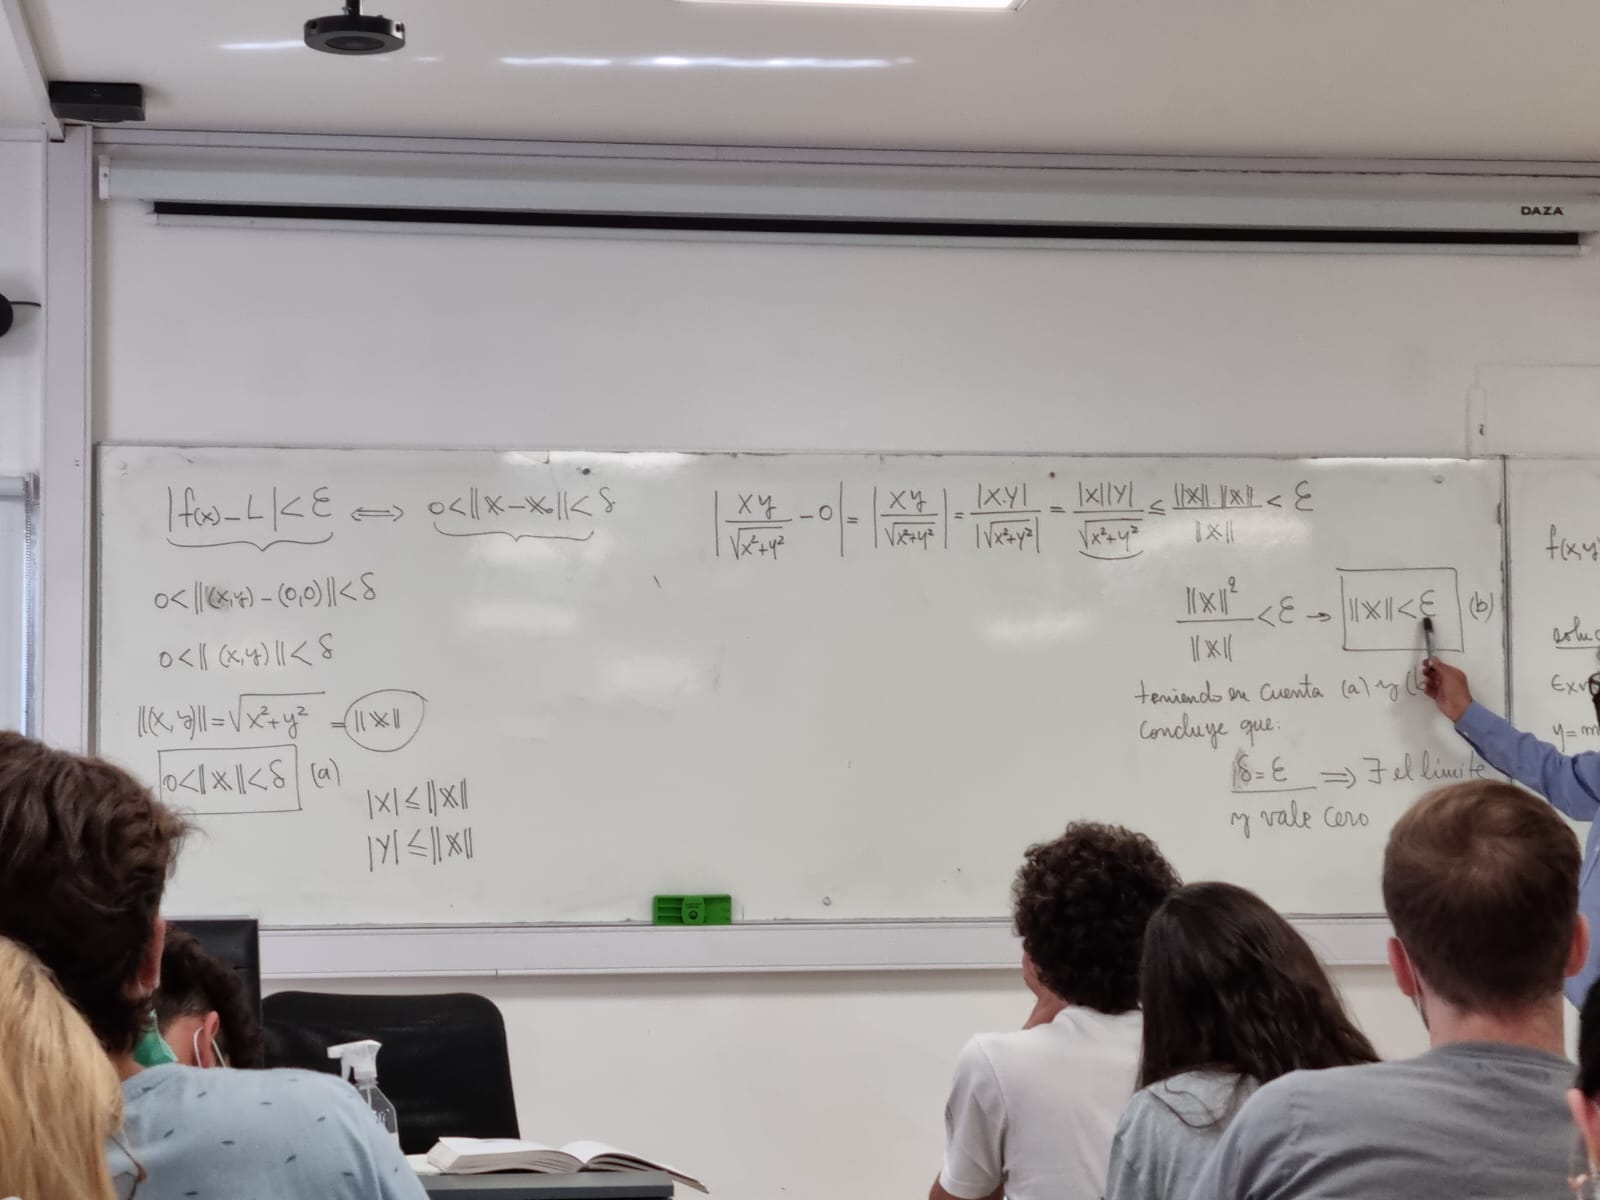 DAZA
|f(x) – L| < ε ⟺ 0 < ||X – X₀|| < δ
0 < ||(x,y) – (0,0)|| < δ
0 < ||(x,y)|| < δ
||(x,y)|| = √x²+y² = ||X||
0 < ||X|| < δ (a)
|X| ≤ ||X||
|Y| ≤ ||X||
|xy/√x²+y² – 0| = |xy/√x²+y²| = |x.y|/|√x²+y²| = |x||y|/√x²+y² ≤ ||X||.||X||/||X|| < ε
||X||²/||X|| < ε → ||X|| < ε (b)
teniendo en cuenta (a) y (b
concluye que:
δ = ε ⟹ ∃ el límite
y vale cero
f(x,y
soluc
y=m